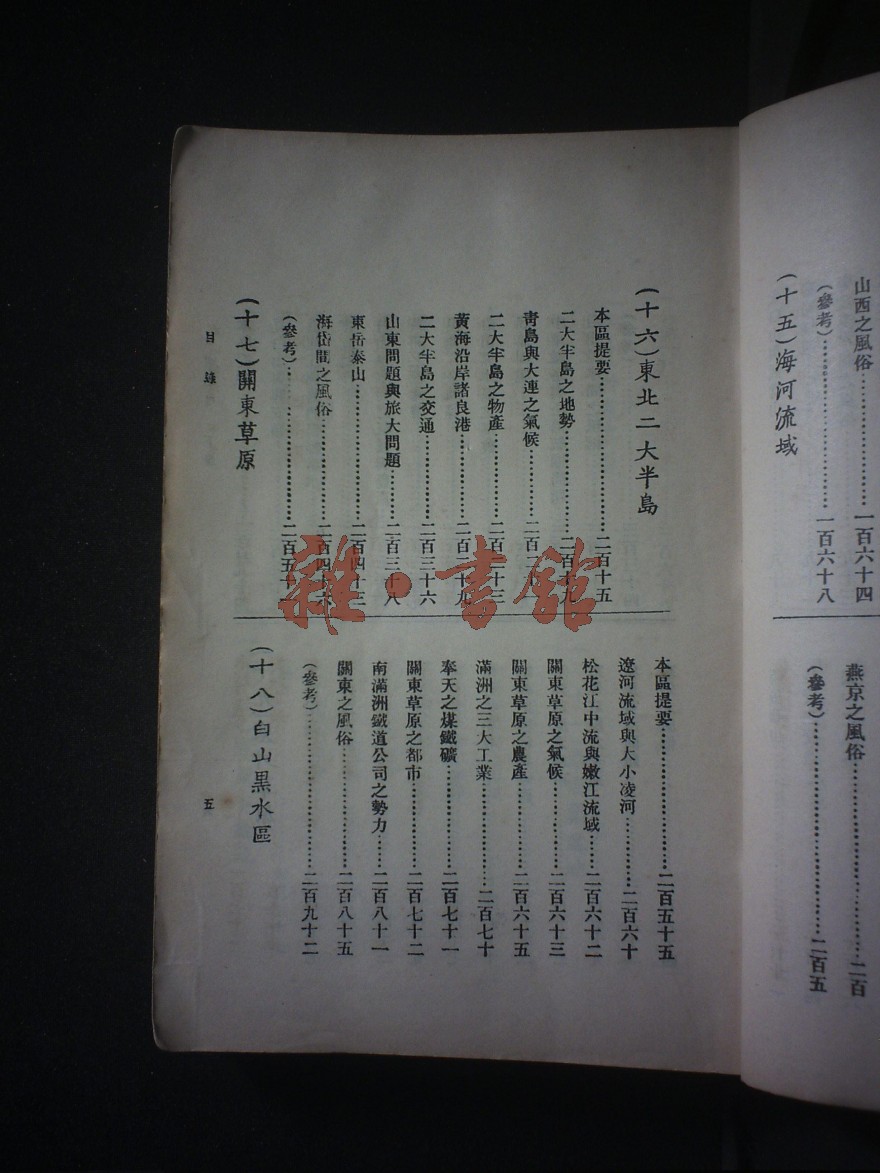 山西之風俗………………一百六十四
(參考)………………一百六十八
(十五)海河流域
燕京之風俗………………二百
(參考)………………二百五
(十六)東北二大半島
本區提要………………二百十五
二大半島之地勢…………二百十九
青島與大連之氣候………二百二
二大半島之物產…………二百二十三
黃海沿岸諸良港…………二百二十九
二大半島之交通…………二百三十六
山東問題與旅大問題……二百三十八
東岳泰山………………二百四十三
海岱間之風俗……………二百四十六
(參考)………………二百五十
(十七)關東草原
本區提要………………二百五十五
遼河流域與大小凌河……二百六十
松花江中流與嫩江流域……二百六十二
關東草原之氣候…………二百六十三
關東草原之農產…………二百六十五
滿洲之三大工業…………二百七十
奉天之煤鐵礦……………二百七十一
關東草原之都市…………二百七十二
南滿洲鐵道公司之勢力……二百八十一
關東之風俗………………二百八十五
(參考)………………二百九十二
(十八)白山黑水區
目錄
五
雜·書館